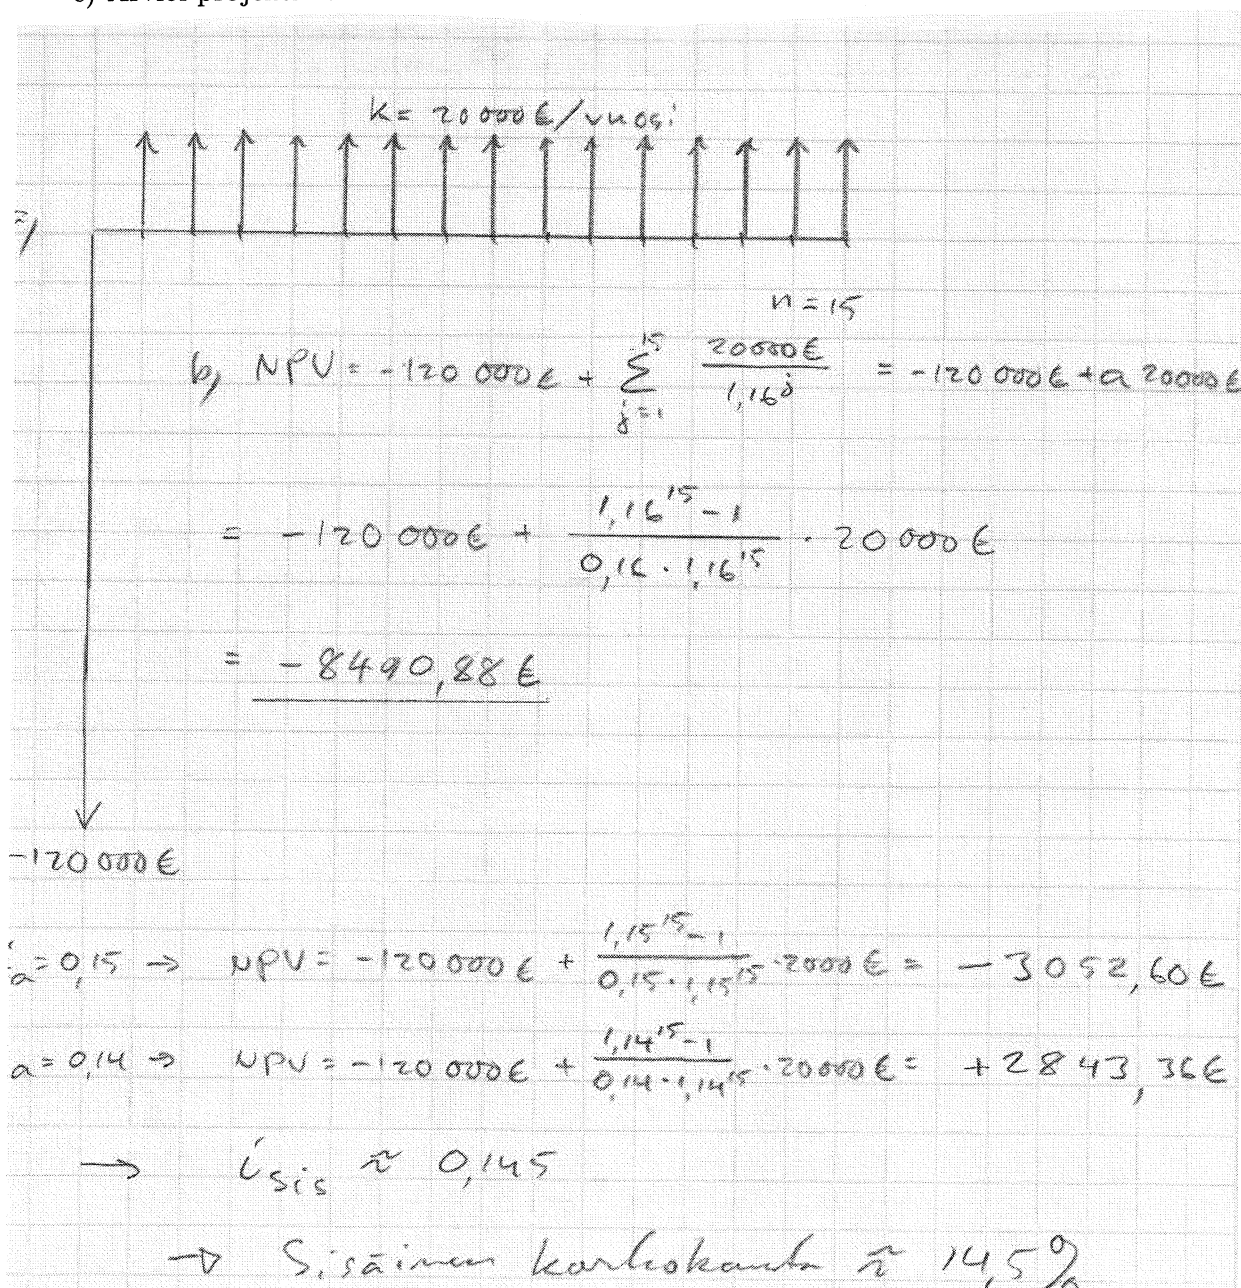 k = 20 000 €/vuosi
n = 15
b) NPV = -120 000 € + Σ_{j=1}^{15} 20000 € / 1,16^j = -120 000 € + a 20000 €
= -120 000 € + (1,16^15 - 1) / (0,16 · 1,16^15) · 20 000 €
= -8490,88 €
-120 000 €
a = 0,15 → NPV = -120 000 € + (1,15^15 - 1) / (0,15 · 1,15^15) · 2000 € = -3052,60 €
a = 0,14 → NPV = -120 000 € + (1,14^15 - 1) / (0,14 · 1,14^15) · 20000 € = +2843,36 €
→ i_sis ≈ 0,145
→ Sisäinen korkokanta ≈ 14,5 %